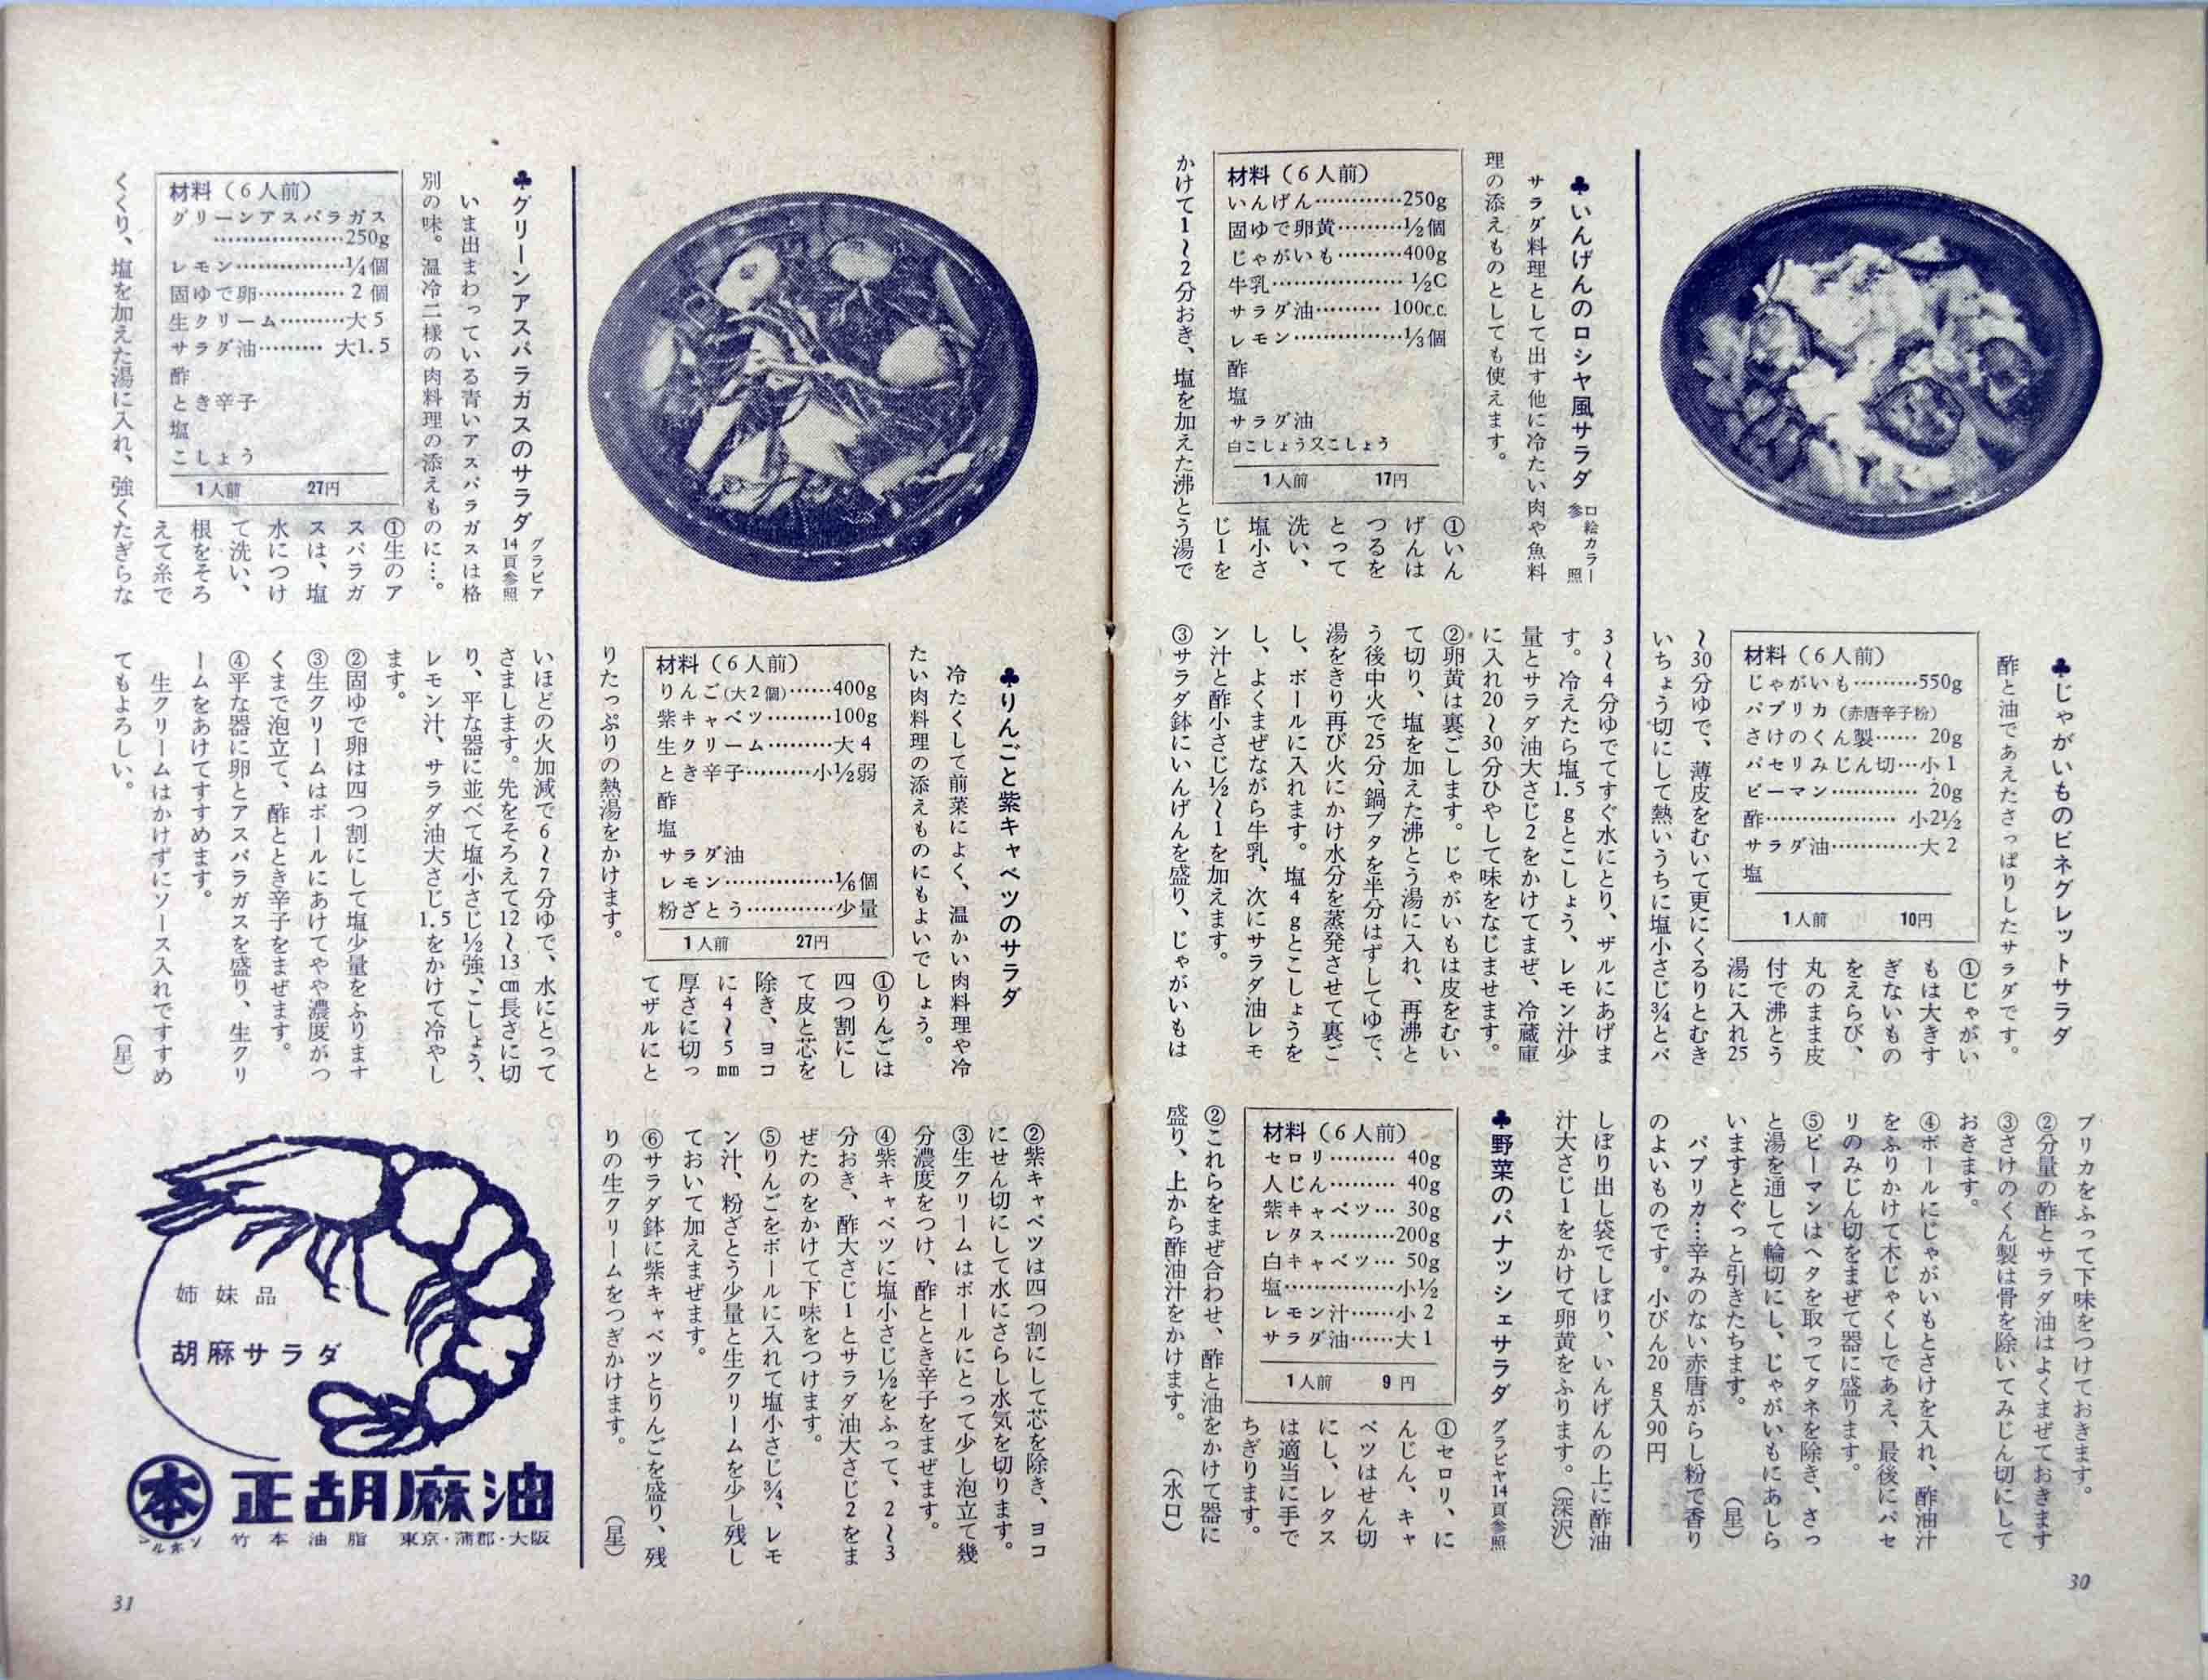 ♣じゃがいものビネグレットサラダ
酢と油であえたさっぱりしたサラダです。
材料（6人前）
じゃがいも………550g
パプリカ（赤唐辛子粉）
さけのくん製…… 20g
パセリみじん切…小 1
ピーマン………… 20g
酢……………… 小2½
サラダ油…………大 2
塩
1人前　10円
①じゃがい
もは大きす
ぎないもの
をえらび、
丸のまま皮
付で沸とう
湯に入れ25
〜30分ゆで、薄皮をむいて更にくるりとむき
いちょう切にして熱いうちに塩小さじ¾とパ
プリカをふって下味をつけておきます。
②分量の酢とサラダ油はよくまぜておきます
③さけのくん製は骨を除いてみじん切にして
おきます。
④ボールにじゃがいもとさけを入れ、酢油汁
をふりかけて木じゃくしであえ、最後にパセ
リのみじん切をまぜて器に盛ります。
⑤ピーマンはヘタを取ってタネを除き、さっ
と湯を通して輪切にし、じゃがいもにあしら
いますとぐっと引きたちます。　（星）
パプリカ…辛みのない赤唐がらし粉で香り
のよいものです。小びん20ｇ入90円
♣いんげんのロシヤ風サラダ　口絵カラー参照
サラダ料理として出す他に冷たい肉や魚料
理の添えものとしても使えます。
材料（6人前）
いんげん…………250g
固ゆで卵黄………½個
じゃがいも………400g
牛乳……………… ½C
サラダ油……… 100c.c.
レモン……………⅓個
酢
塩
サラダ油
白こしょう又こしょう
1人前　17円
①いん
げんは
つるを
とって
洗い、
塩小さ
じ1を
かけて1〜2分おき、塩を加えた沸とう湯で
3〜4分ゆでてすぐ水にとり、ザルにあげま
す。冷えたら塩1.5ｇとこしょう、レモン汁少
量とサラダ油大さじ2をかけてまぜ、冷蔵庫
に入れ20〜30分ひやして味をなじませます。
②卵黄は裏ごします。じゃがいもは皮をむい
て切り、塩を加えた沸とう湯に入れ、再沸と
う後中火で25分、鍋ブタを半分はずしてゆで、
湯をきり再び火にかけ水分を蒸発させて裏ご
し、ボールに入れます。塩4ｇとこしょうを
し、よくまぜながら牛乳、次にサラダ油レモ
ン汁と酢小さじ½〜1を加えます。
③サラダ鉢にいんげんを盛り、じゃがいもは
しぼり出し袋でしぼり、いんげんの上に酢油
汁大さじ1をかけて卵黄をふります。（深沢）
♣野菜のパナッシェサラダ　グラビヤ14頁参照
材料（6人前）
セロリ……… 40g
人じん……… 40g
紫キャベツ… 30g
レタス………200g
白キャベツ… 50g
塩……………小½
レモン汁……小 2
サラダ油……大 1
1人前　9円
①セロリ、に
んじん、キャ
ベツはせん切
にし、レタス
は適当に手で
ちぎります。
②これらをまぜ合わせ、酢と油をかけて器に
盛り、上から酢油汁をかけます。　（水口）
30
♣りんごと紫キャベツのサラダ
冷たくして前菜によく、温かい肉料理や冷
たい肉料理の添えものにもよいでしょう。
材料（6人前）
りんご(大2個)……400g
紫キャベツ………100g
生クリーム………大 4
とき辛子………小½弱
酢
塩
サラダ油
レモン……………⅙個
粉ざとう…………少量
1人前　27円
①りんごは
四つ割にし
て皮と芯を
除き、ヨコ
に4〜5㎜
厚さに切っ
てザルにと
りたっぷりの熱湯をかけます。
②紫キャベツは四つ割にして芯を除き、ヨコ
にせん切にして水にさらし水気を切ります。
③生クリームはボールにとって少し泡立て幾
分濃度をつけ、酢ととき辛子をまぜます。
④紫キャベツに塩小さじ½をふって、2〜3
分おき、酢大さじ1とサラダ油大さじ2をま
ぜたのをかけて下味をつけます。
⑤りんごをボールに入れて塩小さじ¾、レモ
ン汁、粉ざとう少量と生クリームを少し残し
ておいて加えまぜます。
⑥サラダ鉢に紫キャベツとりんごを盛り、残
りの生クリームをつぎかけます。　（星）
♣グリーンアスパラガスのサラダ　グラビア14頁参照
いま出まわっている青いアスパラガスは格
別の味。温冷二様の肉料理の添えものに…。
材料（6人前）
グリーンアスパラガス
………………250g
レモン……………¼個
固ゆで卵………… 2 個
生クリーム………大 5
サラダ油……… 大1.5
酢
とき辛子
塩
こしょう
1人前　27円
①生のア
スパラガ
スは、塩
水につけ
て洗い、
根をそろ
えて糸で
くくり、塩を加えた湯に入れ、強くたぎらな
いほどの火加減で6〜7分ゆで、水にとって
さまします。先をそろえて12〜13㎝長さに切
り、平な器に並べて塩小さじ½強、こしょう、
レモン汁、サラダ油大さじ1.5をかけて冷やし
ます。
②固ゆで卵は四つ割にして塩少量をふります
③生クリームはボールにあけてやや濃度がつ
くまで泡立て、酢ととき辛子をまぜます。
④平な器に卵とアスパラガスを盛り、生クリ
ームをあけてすすめます。
生クリームはかけずにソース入れですすめ
てもよろしい。　（星）
姉妹品
胡麻サラダ
本
マルホン
正胡麻油
竹本油脂　東京・蒲郡・大阪
31